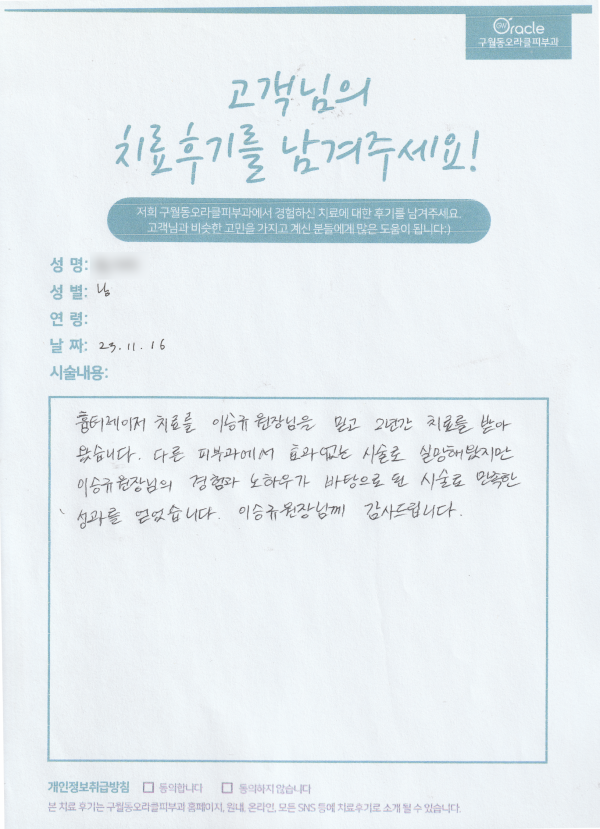 Oracle
구월동오라클피부과
고객님의
치료후기를 남겨주세요!
저희 구월동오라클피부과에서 경험하신 치료에 대한 후기를 남겨주세요.
고객님과 비슷한 고민을 가지고 계신 분들에게 많은 도움이 됩니다:)
성 명:
성 별: 남
연 령:
날 짜: 23.11.16
시술내용:
흉터레이저 치료를 이승규 원장님을 믿고 2년간 치료를 받아
왔습니다. 다른 피부과에서 효과없는 시술로 실망해왔지만
이승규원장님의 경험과 노하우가 바탕으로 된 시술로 만족한
성과를 얻었습니다. 이승규원장님께 감사드립니다.
개인정보취급방침 □ 동의합니다 □ 동의하지 않습니다
본 치료 후기는 구월동오라클피부과 홈페이지, 원내, 온라인, 모든 SNS 등에 치료후기로 소개 될 수 있습니다.